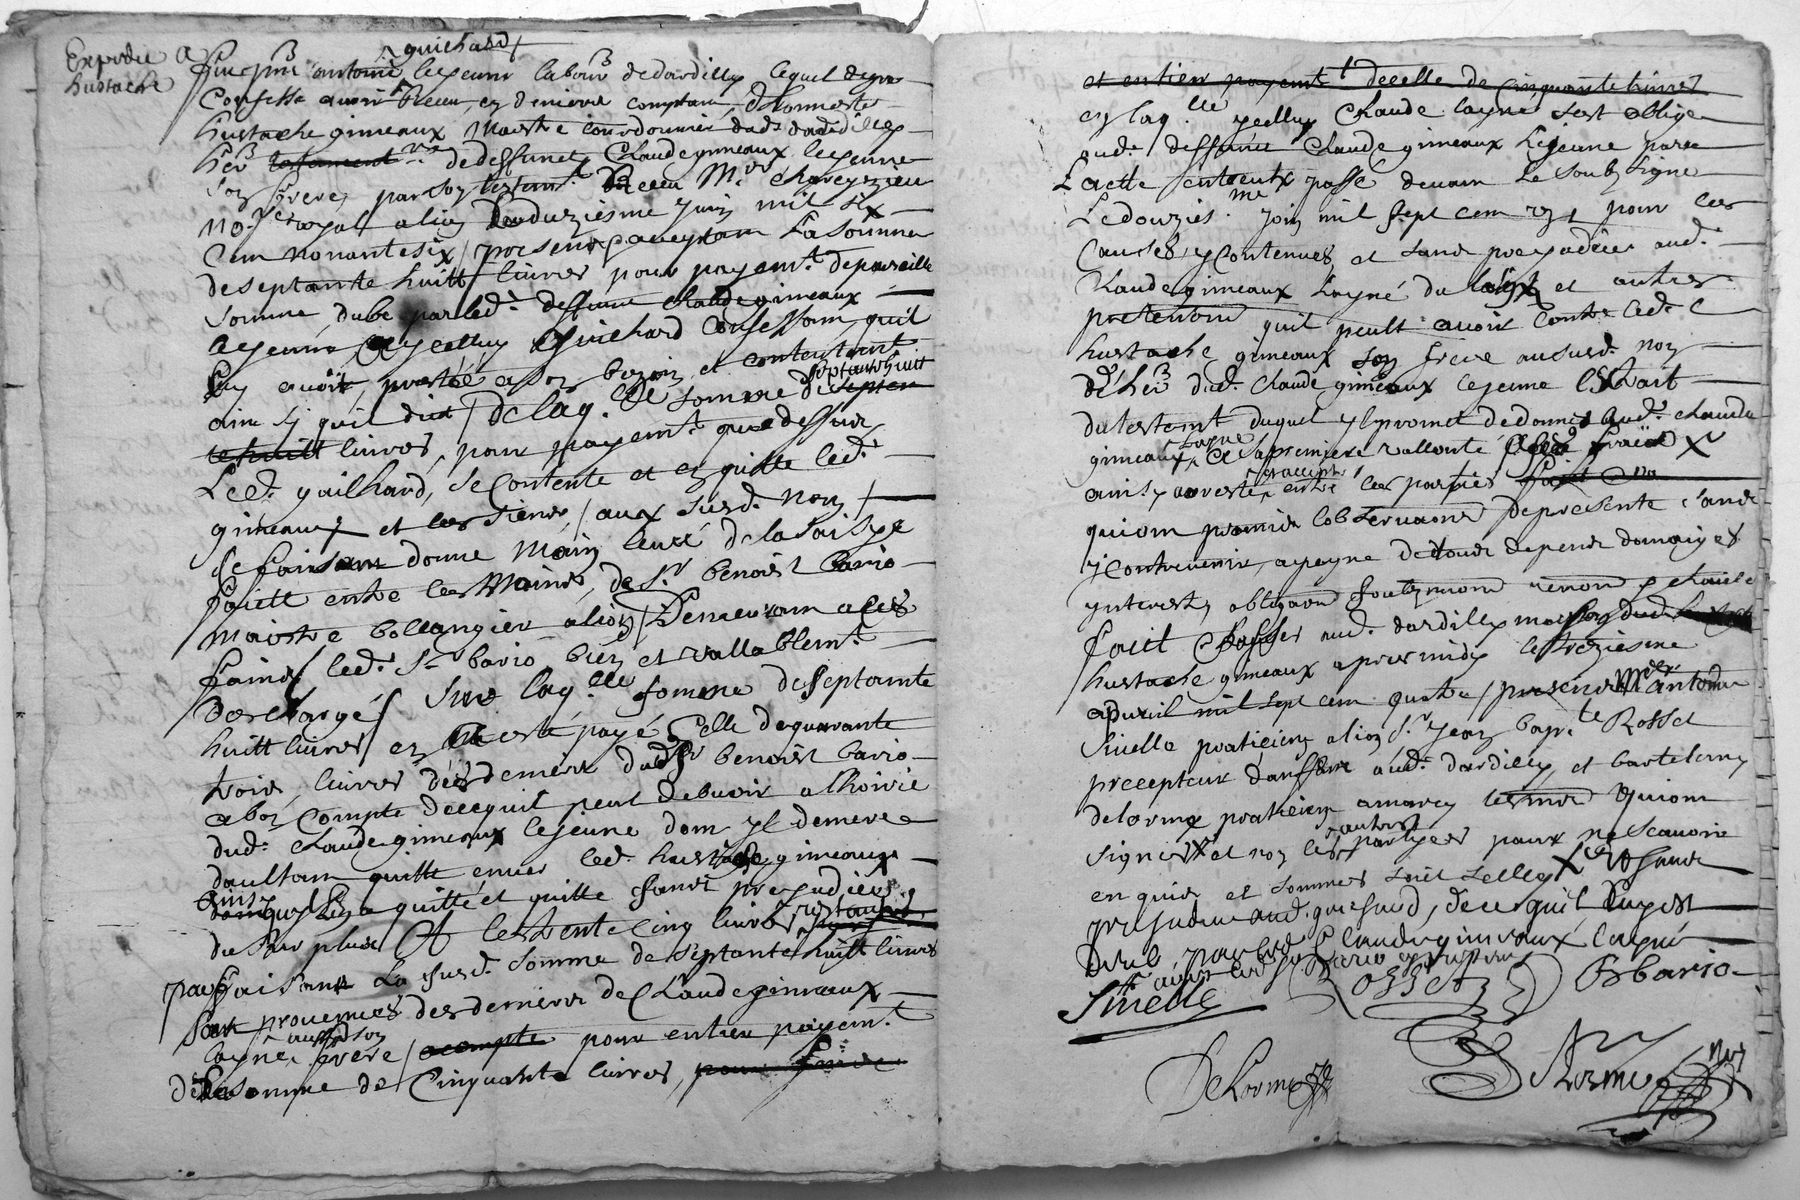 Expedie a
hustache
guichard
fut pnt antoine lejeune labour de dardilly lequel de gre
Confesse avoir Receu en deniers comptant d'honneste
hustache gimeaux Maistre courdonnier dud. dardilly
her de deffunct Claude gimeaux lejeune
son frere, par son testamt Receu Mr chareyzieu
nore royal a lion Le duziesme juin mil six
Cent nonante six / present et acceptant La somme
de septante huitt livres pour payemt de pareille
somme dube par led. deffunt claude gimeaux
lejeune a jcelluy Guichard Confessant quil
luy avoit prestée a son bezoin et contentemt
septante huitt
ainsy quil dict / de laqlle somme de septan
te huitt livres, pour payemt que dessus
Led. guilhard, se Contente et en quitte led.
gimeaux et les siens / aux susd. nom /
Ce faisant donne Main levée de la saisye
faicte entre les Mains de Sr benoist bario
maistre bollangier a lion / Demeurant a ces
fains led. Sr bario bien et vallablemt
deschargé / Sur laqlle somme de septante
huitt livres / en a esté payé Celle de quarante
trois livres des deniers dud. Sr benoist bario
a bon Compte de ce quil peut debvoir a lhoirie
dud. claude gimeaux lejeune dont yl demeure
daultant quitte envers led. hustache gimeaux
ainsy quitte et quitte sans prejudice
du surplus Et les trente cinq livres restantes
parfaisant La susd. somme de septante huitt livres
sont provenues des deniers de Claude gimeaux
layné aussy son frere / acompte pour entier payemt
de La somme de Cinquante livres, pour fin de
et entier payemt de celle de cinquante livres
en laqlle jcelluy Claude layné sest oblige
aud. deffunct Claude gimeaux Lejeune par
Lacte entreux passé devant Le soubsigné
Le douziesme join mil sept cent un, pour les
Causes y contenues et sans prejudice aud.
Claude gimeaux layné du et autres
pretentions quil peult avoir Contre led.
hustache gimeaux son frere au susd. nom
d'her dud. Claude gimeaux lejeune lextrait
du testamt duquel yl promet de donner aud. claude
gimeaux layné a la premiere vollonté
ainsy arresté et accepté entre les parties
qui ont promis lobservaons de presente sans
y contrevenir, a peyne de tous despens domaiges
ynterest, obligaons soubzmissions renons et clauses
faict et passé aud. dardilly maison dud.
hustache gimeaux apres midy le treziesme
apvril mil sept cent quatre / presens Me antoine
Sivelle praticien a lion Sr jean bapte Rosset
precepteur danffans aud. dardilly et bartelemy
delorme praticien a marcy tesmoins qui ont
signes et non les autres partyes pour ne scavoir
enquis et sommes suit selley X Et sans
prejudice aud. guichard, de ce quil luy est
deub par led. Claude gimeaux layné
avec led. Sr Bario
Sivelle Rosset B bario
DeLorme DeLorme nore